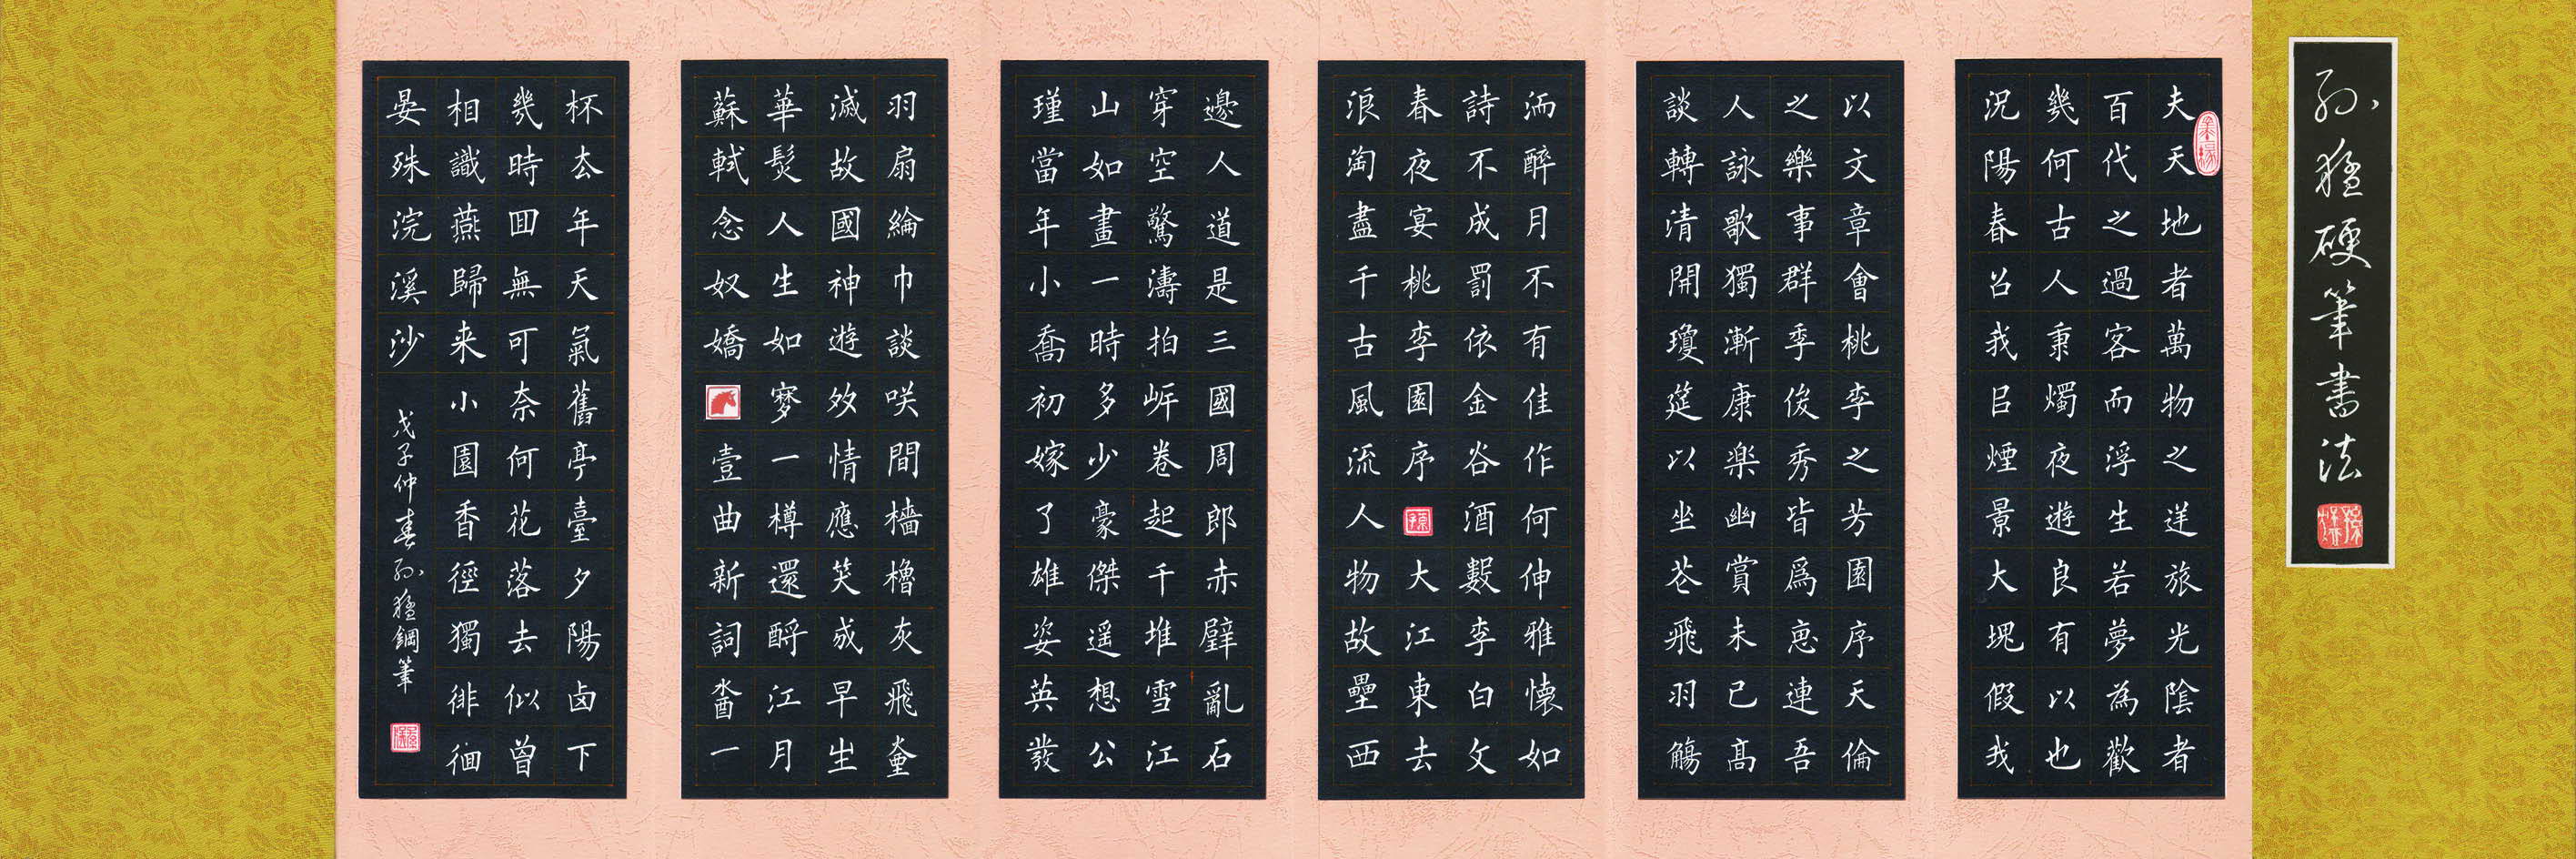 孙猛硬筆書法
夫天地者萬物之逆旅光陰者
百代之過客而浮生若夢為歡
幾何古人秉燭夜遊良有以也
況陽春召我㠯煙景大塊假我
以文章會桃李之芳園序天倫
之樂事群季俊秀皆爲惠連吾
人詠歌獨慚康樂幽賞未已高
談轉清開瓊筵以坐花飛羽觴
而醉月不有佳作何伸雅懷如
詩不成罰依金谷酒數李白文
春夜宴桃李園序大江東去
浪淘盡千古風流人物故壘西
邊人道是三國周郎赤壁亂石
穿空驚濤拍岸卷起千堆雪江
山如畫一時多少豪傑遥想公
瑾當年小喬初嫁了雄姿英發
羽扇綸巾談咲間檣櫓灰飛
滅故國神遊多情應笑我早生
華髮人生如夢一樽還酹江月
蘇軾念奴嬌壹曲新詞酒一
杯去年天氣舊亭臺夕陽西下
幾時回無可奈何花落去似曾
相識燕歸来小園香徑獨徘徊
晏殊浣溪沙
戊子仲春孙猛鋼筆